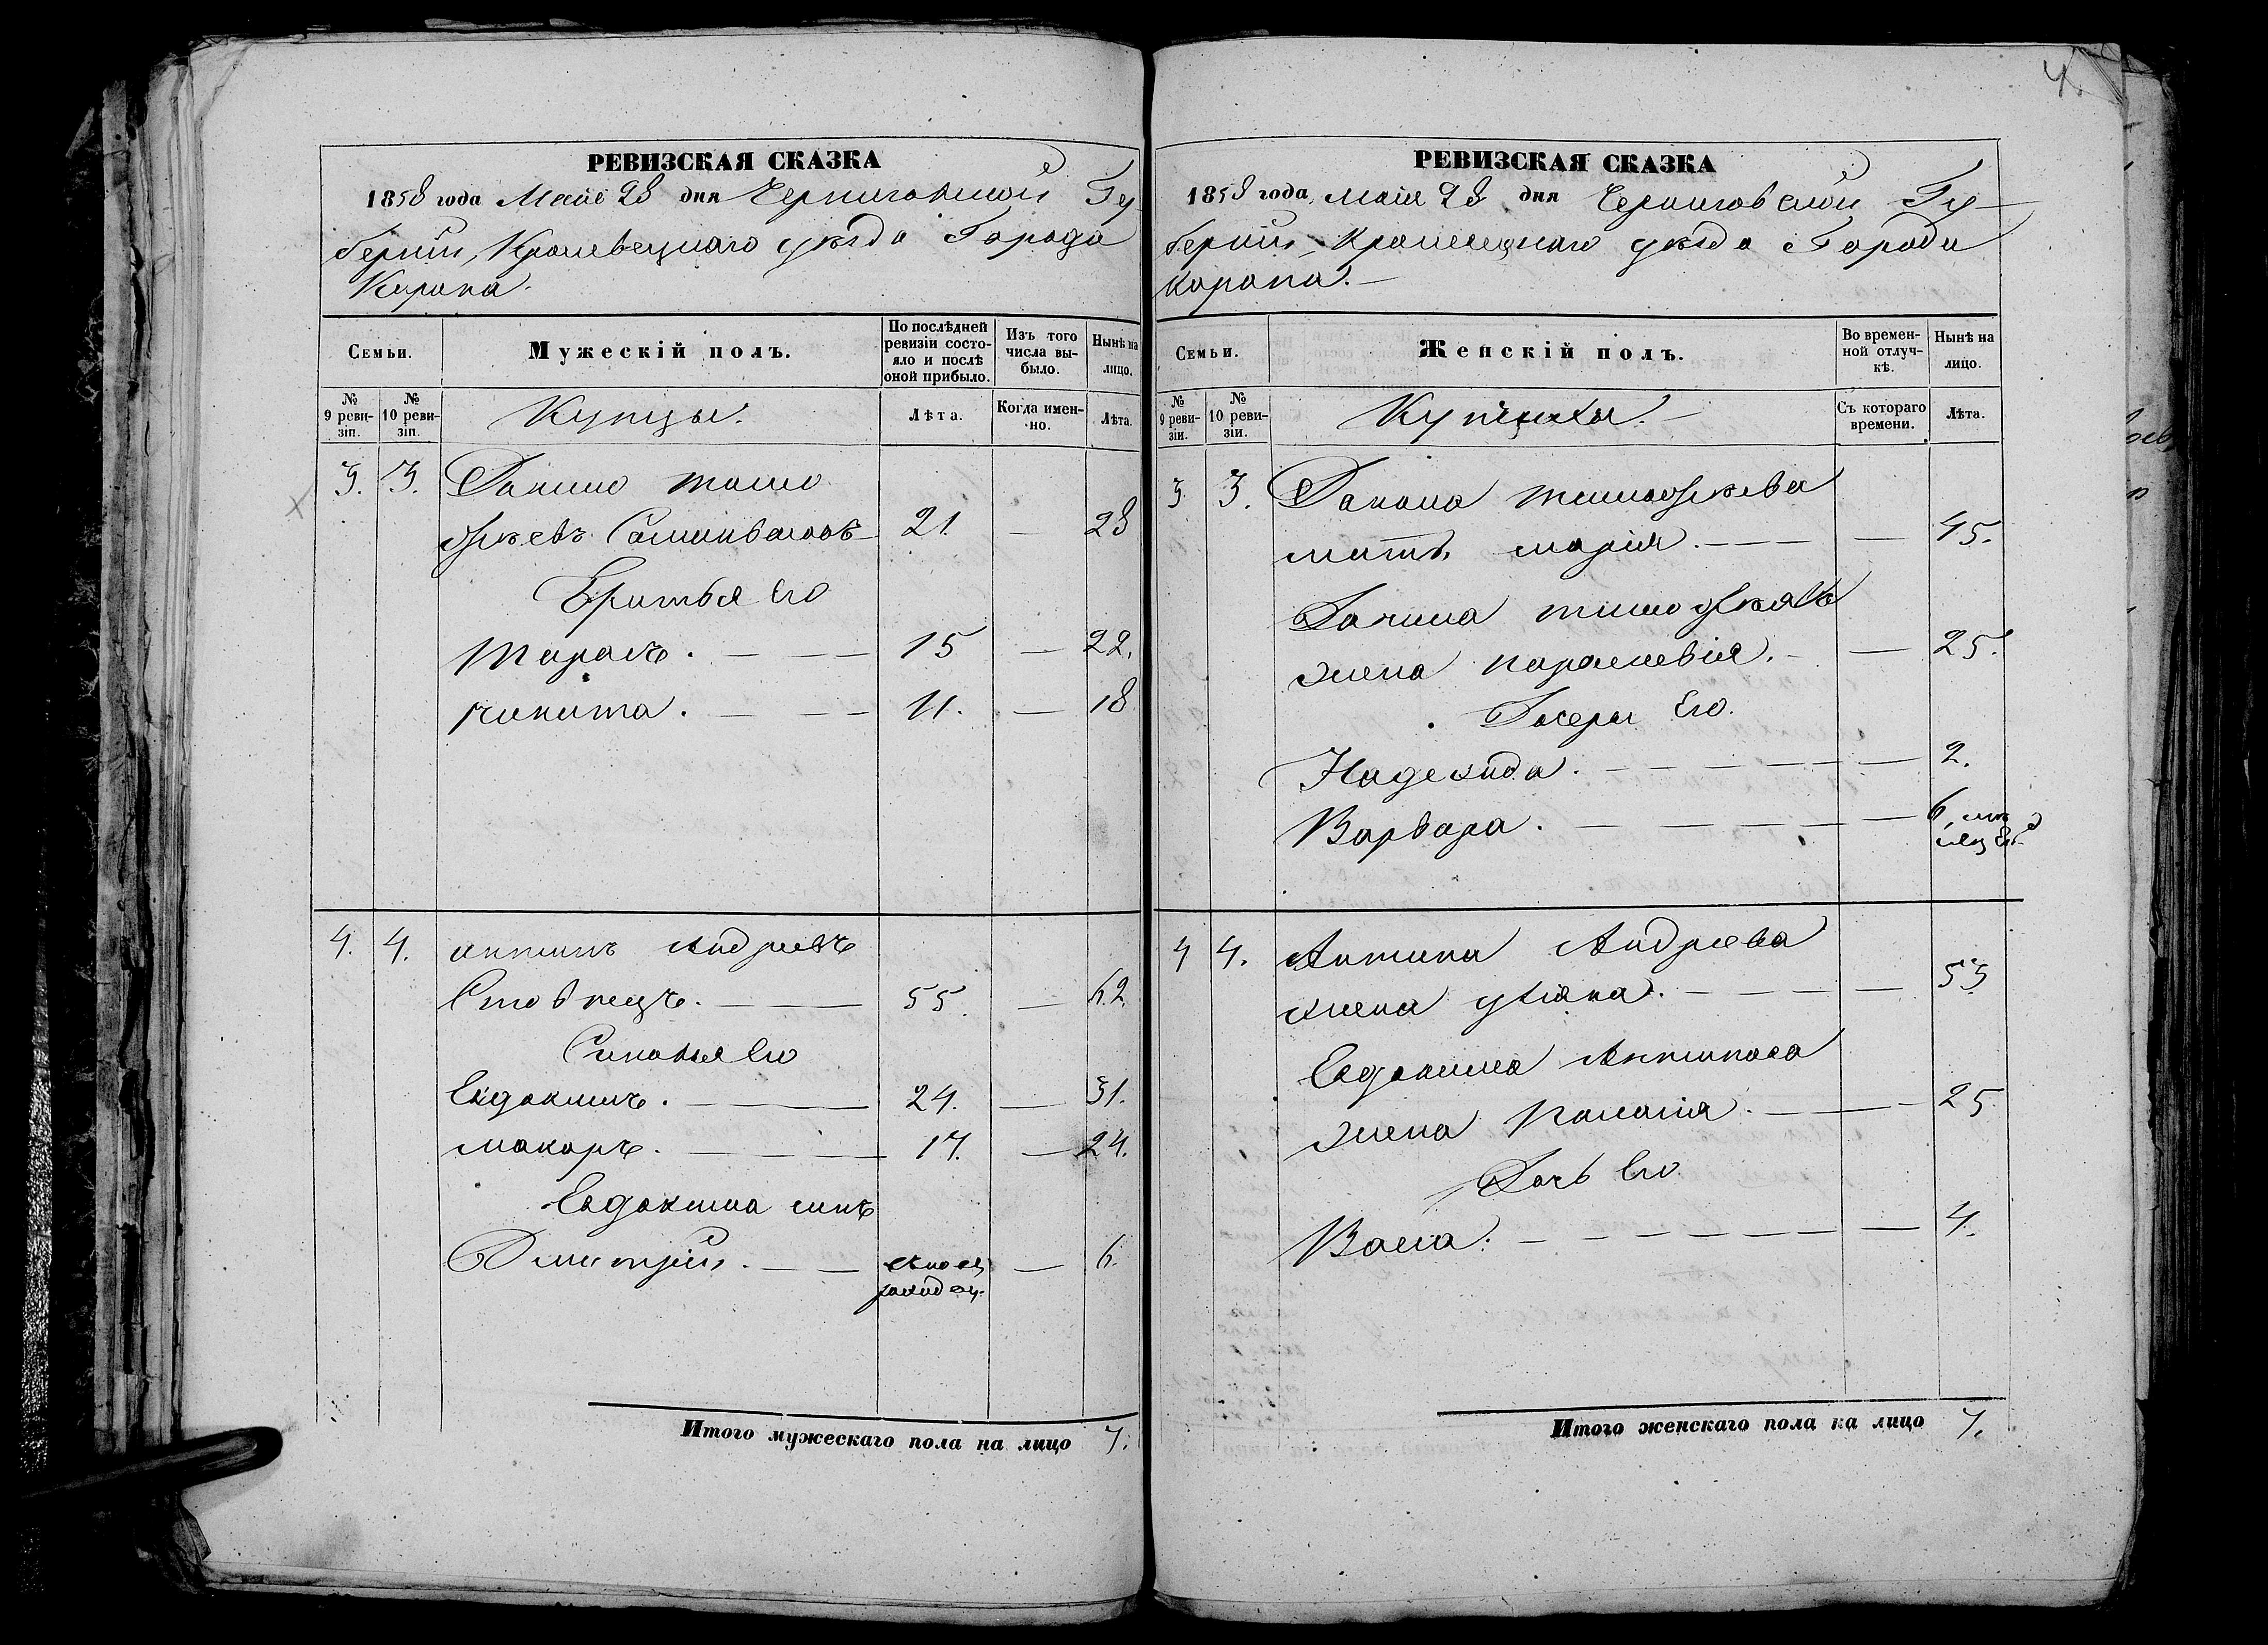 РЕВИЗСКАЯ СКАЗКА
1858 года Маія 28 дня Черниговской Гу
берніи, Кролевецкаго уѣзда Города
Коропа.
Семьи.
Мужескій полъ.
По послѣдней ревизіи состояло и послѣ оной прибыло.
Изъ того числа выбыло.
Нынѣ на лицо.
№ 9 ревизіи.
№ 10 ревизіи.
Купцы.
Лѣта.
Когда именно.
Лѣта.
3. 3. Данило Тимо
фѣевъ 21. — 28
Братья Его
Тарасъ. — 15 — 22.
Никита. — 11. — 18
4. 4. Антипъ Андреевъ
55. — 62.
Синовья Его
Евдокимъ. — 24. — 31.
Макаръ. — 17. — 24.
Евдокима синъ
Дмитрій. — — 6.
Итого мужескаго пола на лицо 7.
4.
РЕВИЗСКАЯ СКАЗКА
1858 года, Маія 28 дня Черниговской Гу
берніи, Кролевецкаго уѣзда Города
Коропа.
Семьи.
Женскій полъ.
Во временной отлучкѣ.
Нынѣ на лицо.
№ 9 ревизіи.
№ 10 ревизіи.
Съ котораго времени.
Лѣта.
3 3. Данила Тимофѣева
мать Марія. — — 45.
Данила Тимофѣева
жена Параскевія. — — 25.
Дочери Его.
Надежда. — — 2.
Варвара. — — 6, мѣ
сяцевъ
4 4. Антипа Андреева
жена Уліяна. — — 55
Евдокима Антипова
жена Пелагія. — — 25
Дочь Его
Васса. — — 4.
Итого женскаго пола на лицо 7.